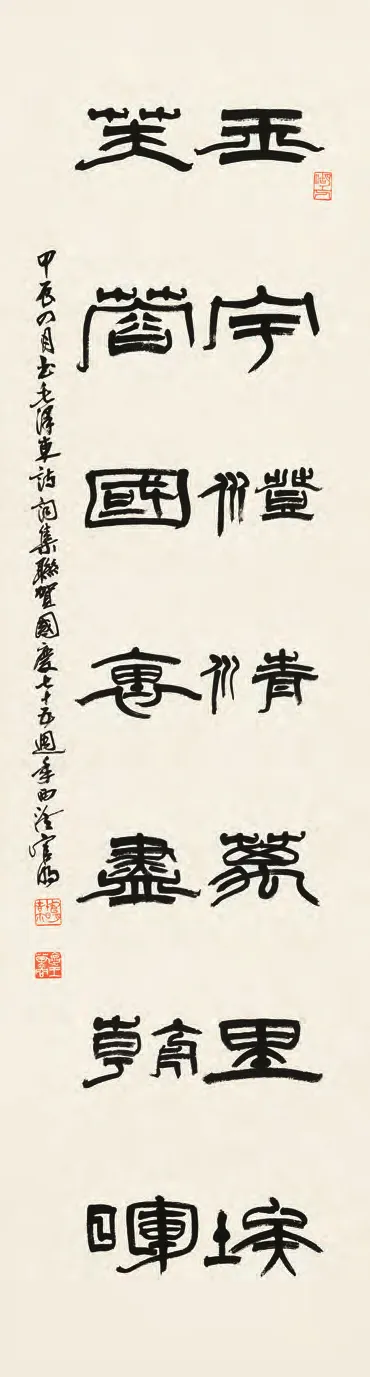 玉宇澄清萬里埃
芙蓉國裏盡朝暉
甲辰四月書毛澤東詩詞集聯賀國慶七十五週年西泠